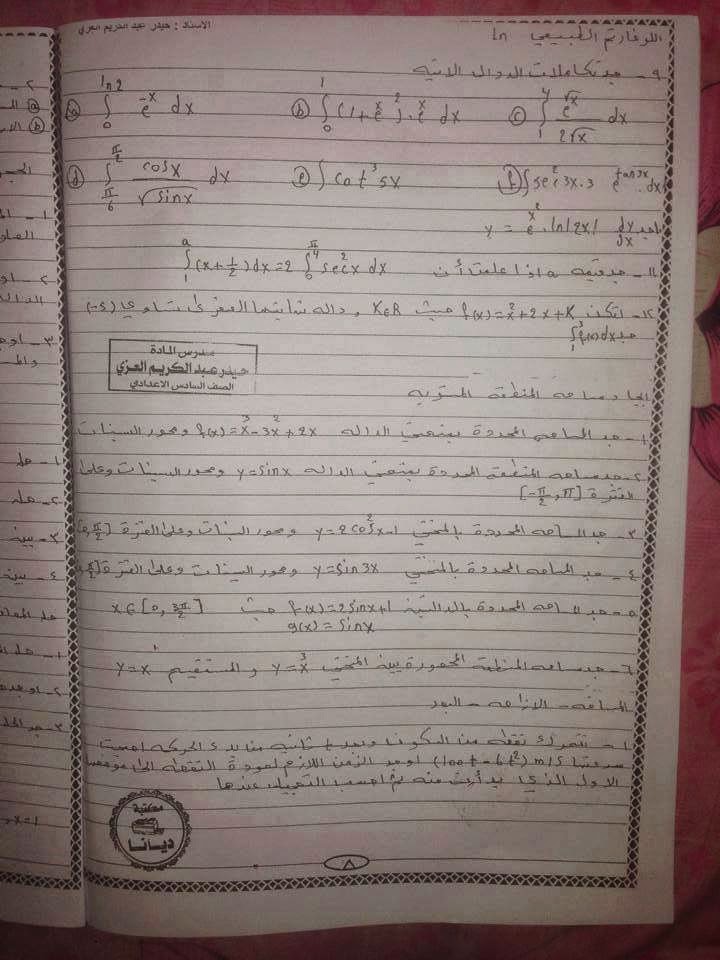 الاستاذ : حيدر عبد الكريم العزي
اللوغارتم الطبيعي ln
٩- جد تكاملات الدوال الاتيه
ⓐ ∫₀^{ln2} e^{-x} dx ⓑ ∫₀^{1} (1+e^{x})^{2}.e^{x} dx ⓒ ∫₁^{4} e^{√x}/2√x dx
ⓓ ∫_{π/6}^{π/2} cosx/√sinx dx ⓔ ∫cot³5x ⓕ ∫sec²3x.3 e^{tan3x}.dx
dy/dx y = e^{x²}.ln|2x|
١١- جد قيمة a اذا علمت أن ∫₁^{a}(x+1/2)dx=2∫₀^{π/4} sec²x dx
١٢- لتكن f(x)=x²+2x+K حيث K∈R ، دالة نهايتها الصغرى تساوي (-5)
جد ∫₁^{3} f(x)dx
مدرس المادة
حيدر عبد الكريم العزي
الصف السادس الاعدادي
ايجاد مساحة المنطقة المستويه
١- جد المساحه المحددة بمنحني الداله f(x)=x³-3x²+2x ومحور السينات
٢- جد مساحه المنطقة المحددة بمنحني الداله y=sinx ومحور السينات وعلى
الفترة [-π/2,π]
٣- جد المساحه المحددة بالمنحني y=2cos²x-1 ومحور السينات وعلى الفترة [0,π/2]
٤- جد المساحه المحددة بالمنحني y=sin3x ومحور السينات وعلى الفترة
٥- جد المساحه المحددة بالدالتين f(x)=2sinx+1 حيث x∈[0,3π/2]
g(x)=sinx
٦- جد مساحه المنطقة المحصورة بين المنحني y=x³ و المستقيم y=x
المسافه - الازاحه - البعد
١- تتحرك نقطه من السكون وبعد t ثانيه من بدء الحركه اصبحت
سرعتها (100t-6t²) m/s اوجد الزمن اللازم لعودة النقطه الى موضعها
الاول الذي بدأت منه ثم احسب التعجيل عندها
مكتبة
ديانا
٨